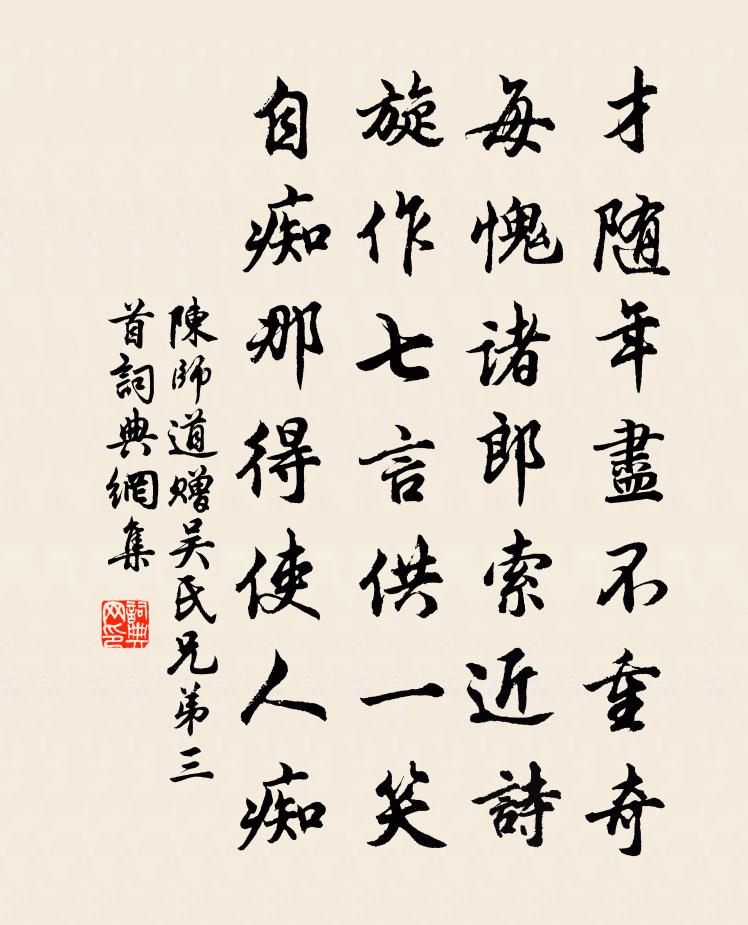 才随年盡不重奇
每愧诸郎索近詩
旋作七言供一笑
自痴那得使人痴
陳師道赠吴氏兄弟三
首詞典網集
詞典
网印